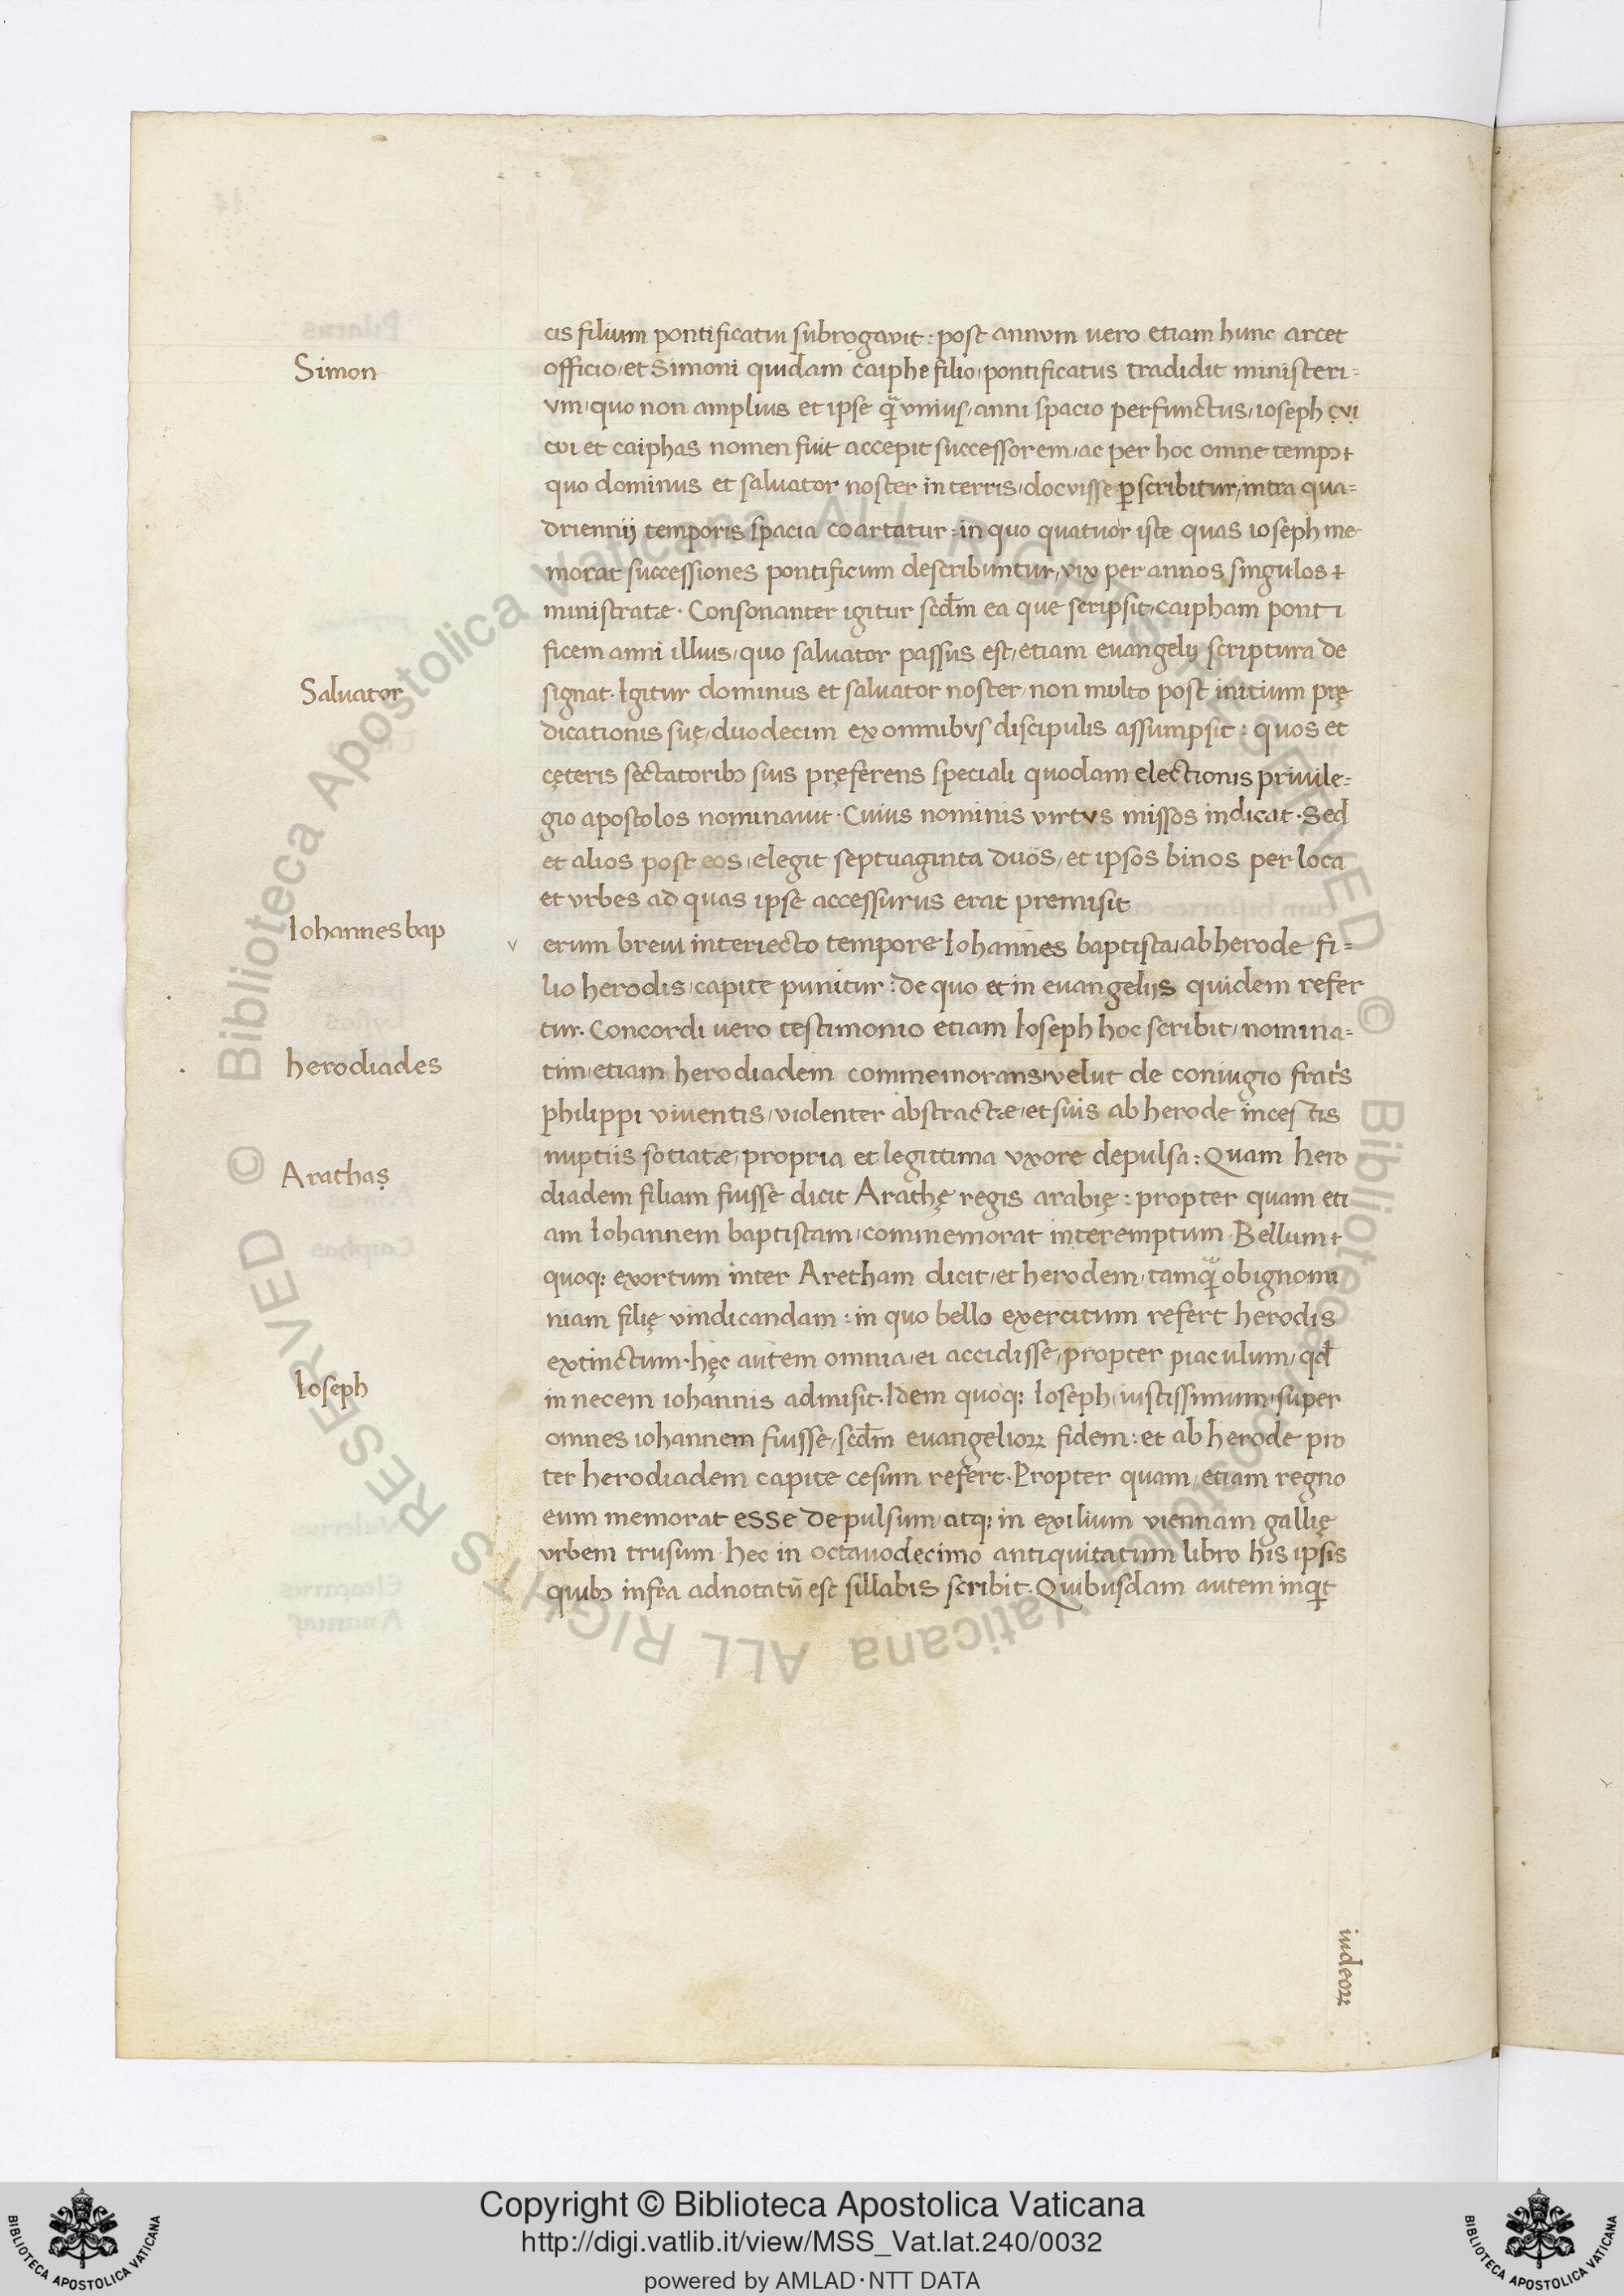 cis filium pontificatui subrogavit : post annvm uero etiam hunc arcet
Simon
officio, et Simoni quidam caiphe filio, pontificatus tradidit ministeri=
vm, quo non amplius et ipse qͣ̃ vnius, anni spacio perfunctus, ioseph cvi
cvi et caiphas nomen fuit accepit successorem, ac per hoc omne tempꝰ
quo dominus et saluator noster in terris, docvisse ꝑscribitur, intra qua=
driennij temporis spacia coartatur : in quo quatuor iste quas ioseph me
morat successiones pontificum describuntur, vix per annos singulos
ministratæ. Consonanter igitur scdm̄ ea que scripsit, caipham ponti
ficem anni illius, quo saluator passus est, etiam euangelij scriptura de
Saluator
signat. Igitur dominus et saluator noster, non multo post initium prę
dicationis suę, duodecim ex omnibvs discipulis assumpsit : quos et
cęteris sectatoribꝰ suis pręferens speciali quodam electionis priuile=
gio apostolos nominauit. Cuius nominis virtvs missos indicat. Sed
et alios post eos, elegit septuaginta duos, et ipsos binos per loca
et vrbes ad quas ipse accessurus erat premisit
Iohannes bap
v erum breui interiecto tempore Iohannes baptista, ab herode fi=
lio herodis, capite punitur : de quo et in euangelijs quidem refer
tur. Concordi uero testimonio etiam Ioseph hoc scribit, nomina=
herodiades
tim, etiam herodiadem commemorans, velut de coniugio frat's
philippi viuentis, violenter abstractæ, et suis ab herode incestis
nuptiis sociatæ, propria et legittima vxore depulsa : Quam hero
Arathas
diadem filiam fuisse dicit Arathę regis arabię : propter quam eti
am Iohannem baptistam, commemorat interemptum. Bellum
quoq; exortum inter Aretham dicit, et herodem, tamqͣ̃ ob ignomi
niam filię vindicandam : in quo bello exercitum refert herodis
extinctum. hęc autem omnia, ei accidisse, propter piaculum, qd̄
Ioseph
in necem iohannis admisit. Idem quoq; Ioseph, iustissimum, super
omnes iohannem fuisse, scdm̄ euangelioꝝ fidem : et ab herode pro
ter herodiadem capite cesum refert. Propter quam, etiam regno
eum memorat esse depulsum, atq; in exilium viennam gallię
vrbem trusum. hec in octauodecimo antiquitatum libro his ipsis
quibꝰ infra adnotatū est sillabis scribit. Quibusdam autem inqͥt
iudeoꝝ
Copyright © Biblioteca Apostolica Vaticana
http://digi.vatlib.it/view/MSS_Vat.lat.240/0032
powered by AMLAD·NTT DATA
BIBLIOTECA APOSTOLICA VATICANA
BIBLIOTECA APOSTOLICA VATICANA
© Biblioteca Apostolica Vaticana ALL RIGHTS RESERVED
© Biblioteca Apostolica Vaticana ALL RIGHTS RESERVED